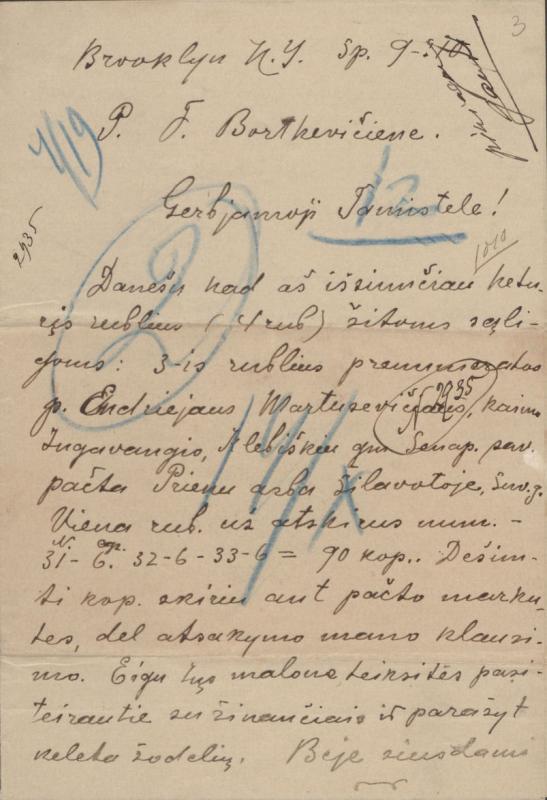 3
Brooklyn N.Y. Sp. 9-
4/19
P. F. Bortkevičiene.
12
Gerbjamoji Tamistele!
2935
1010
2
Danešu kad aš išsiunčiau ketu-
rįs rublius (4 rub) šitoms sąli-
goms: 3-is rublius prenumeratos
p. Endriejaus Martusevičiaus, kaimo
N 2935
Ingavangio, Klebiškiu gm Senap. pav.
pačta Prienu arba Šilavotoje, Suv. g.
14/X
Viena rub. už atskirus num. -
N. eg.
31 - 6. 32-6-33-6 = 90 kop.. Dešim-
ti kop. skiriu ant pačto marku-
tes, del atsakymo mano klausi-
mo. Eigu Jųs malone teiksitės pasi-
teirautie su žinančiais ir parašyt
keleta žodelių. Beje siusdami